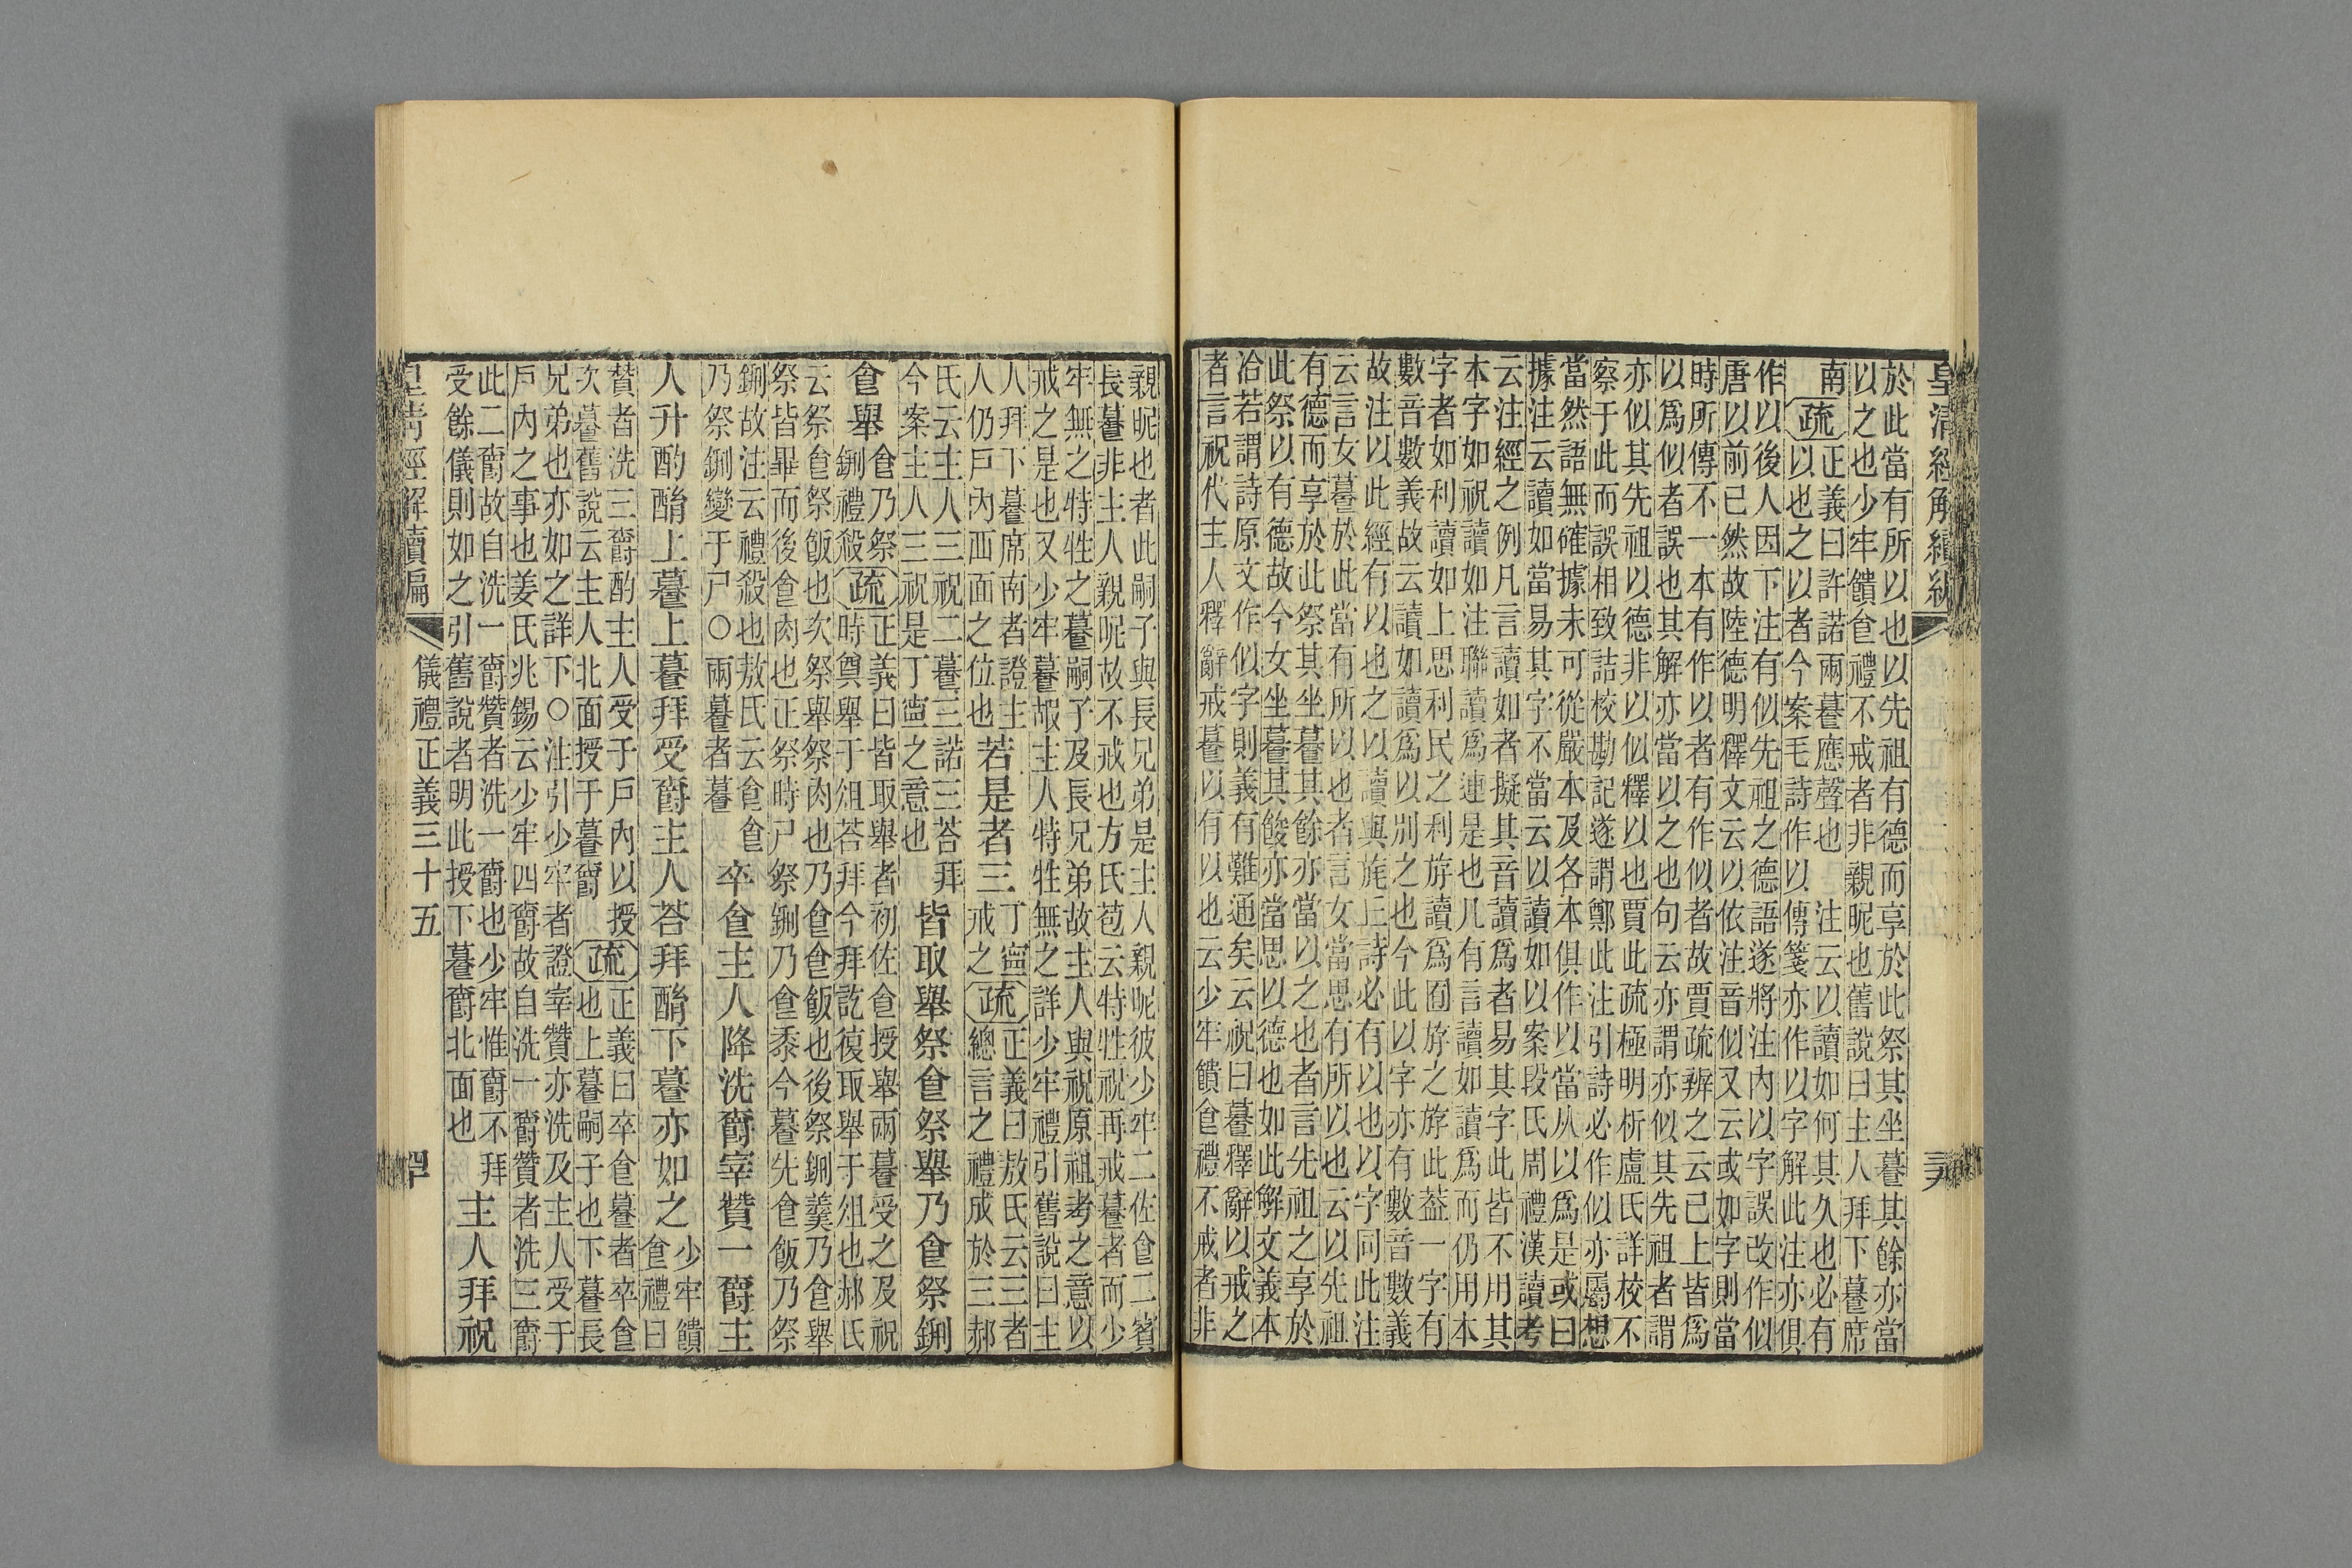 皇清經解續編
於此當有所以也以先祖有德而享於此祭其坐䉵其餘亦當
以之也少牢饋食禮不戒者非親昵也舊說曰主人拜下䉵席
南疏正義曰許諾兩䉵應聲也　注云以讀如何其久也必有
以也之以者今案毛詩作以傳箋亦作以字解此注亦俱
作以後人因下注有似先祖之德語遂將注內以字誤改作似
唐以前已然故陸德明釋文云以依注音似又云或如字則當
時所傳不一本有作以者有作似者故賈疏辨之云已上皆爲
以爲似者誤也其解亦當以之也句云亦謂亦似其先祖者謂
亦似其先祖以德非以似釋以也賈此疏極明析盧氏詳校不
察于此而誤相致詰校勘記遂謂鄭此注引詩必作似亦屬想
當然語無確據未可從嚴本及各本俱作以當从以爲是或曰
據注云讀如當易其字不當云以讀如以案段氏周禮漢讀考
云注經之例凡言讀如者擬其音讀爲者易其字此皆不用其
本字如祝讀如注聯讀爲連是也凡有言讀如讀爲而仍用本
字者如利讀如上思利民之利斿讀爲囿斿之斿此葢一字有
數音數義故云讀如讀爲以別之也今此以字亦有數音數義
故注以此經有以也之以讀與旄丘詩必有以也以字同此注
云言女䉵於此當有所以也者言女當思有所以也云以先祖
有德而享於此祭其坐䉵其餘亦當以之也者言先祖之享於
此祭以有德故今女坐䉵其餕亦當思以德也如此解文義本
洽若謂詩原文作似字則義有難通矣云祝曰䉵釋辭以戒之
者言祝代主人釋辭戒䉵以有以也云少牢饋食禮不戒者非
親昵也者此嗣子與長兄弟是主人親昵彼少牢二佐食二賓
長䉵非主人親昵故不戒也方氏苞云特牲祝再戒䉵者而少
牢無之特牲之䉵嗣子及長兄弟故主人與祝原祖考之意以
戒之是也又少牢䉵嘏主人特牲無之詳少牢禮引舊說曰主
人拜下䉵席南者證主
人仍戶內西面之位也
若是者三
丁寧
戒之
疏正義曰敖氏云三者
總言之禮成於三郝
氏云主人三祝二䉵三諾三荅拜
今案主人三祝是丁寧之意也
皆取舉祭食祭舉乃食祭鉶
食舉
食乃祭
鉶禮殺
疏正義曰皆取舉者初佐食授舉兩䉵受之及祝
時奠舉于俎荅拜今拜訖復取舉于俎也郝氏
云祭食祭飯也次祭舉祭肉也乃食食飯也後祭鉶羹乃食舉
祭皆畢而後食肉也正祭時尸祭鉶乃食黍今䉵先食飯乃祭
鉶故注云禮殺也敖氏云食食
乃祭鉶變于尸○兩䉵者䉵
卒食主人降洗爵宰贊一爵主
人升酌酳上䉵上䉵拜受爵主人荅拜酳下䉵亦如之
少牢饋
食禮曰
贊者洗三爵酌主人受于戶內以授
次䉵舊說云主人北面授于䉵爵
疏正義曰卒食䉵者卒食
也上䉵嗣子也下䉵長
兄弟也亦如之詳下○注引少牢者證宰贊亦洗及主人受于
戶內之事也姜氏兆錫云少牢四爵故自洗一爵贊者洗三爵
此二爵故自洗一爵贊者洗一爵也少牢惟爵不拜
受餘儀則如之引舊說者明此授下䉵爵北面也
主人拜祝
皇清經解續編　儀禮正義三十五